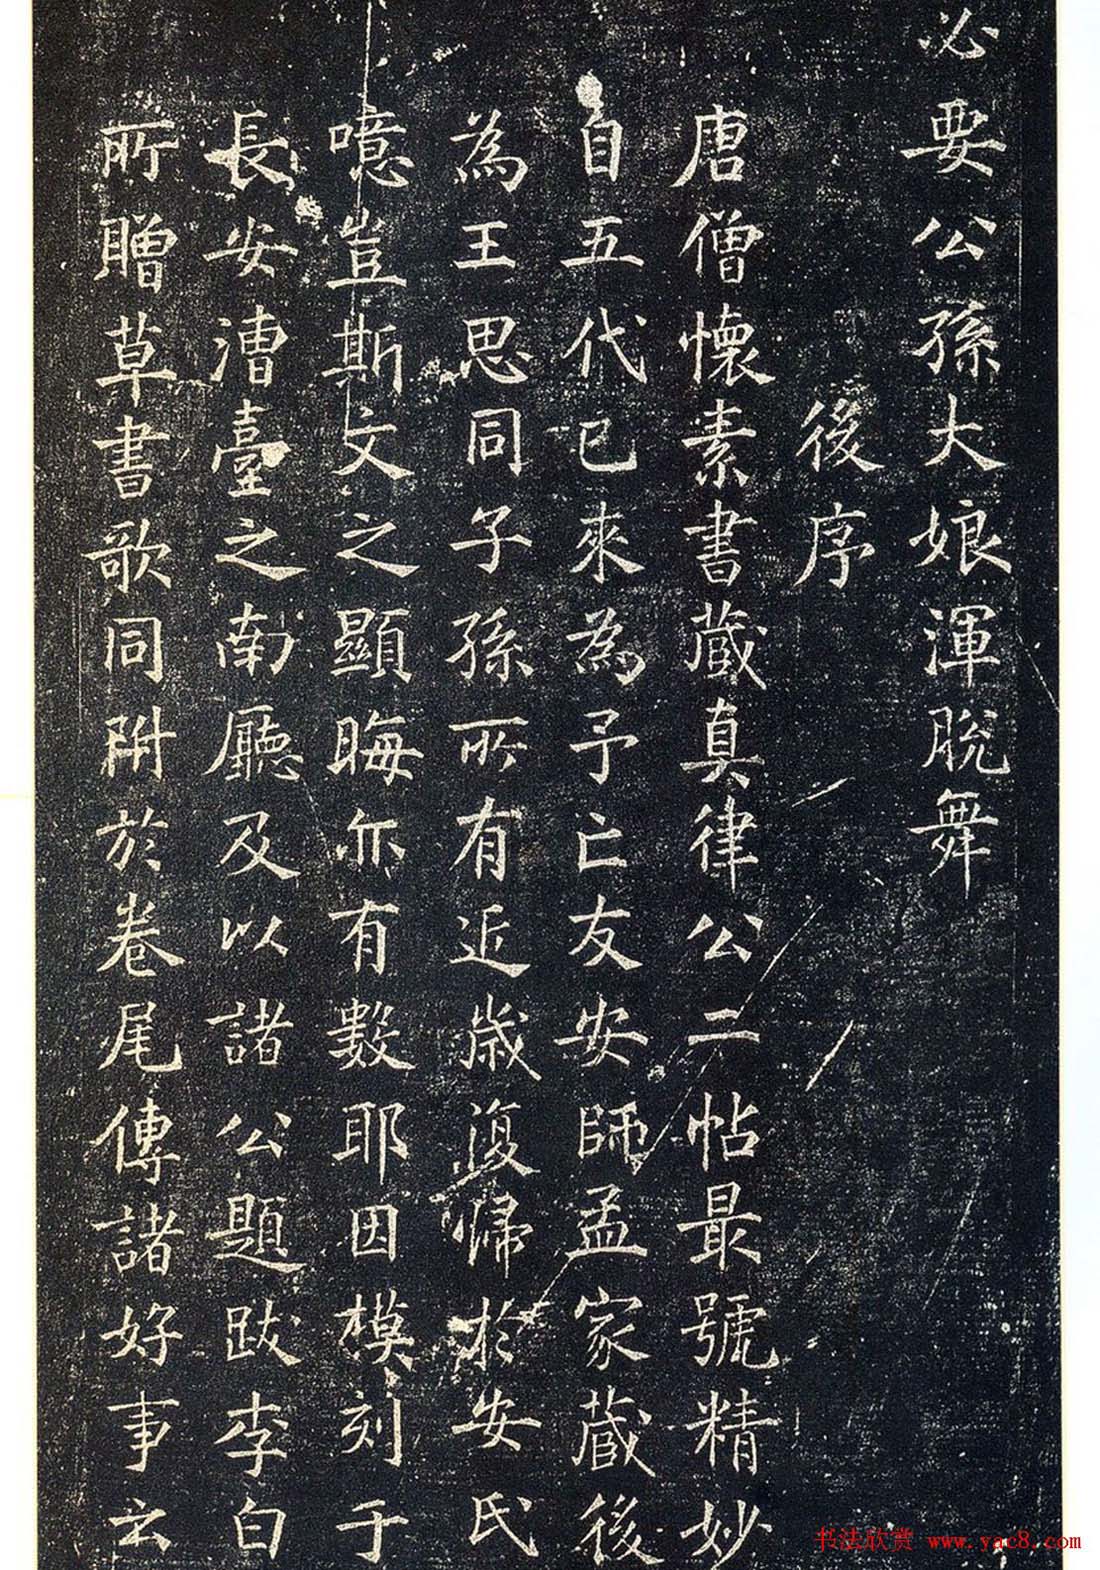 必要公孫大娘渾脫舞
後序
唐僧懷素書藏真律公二帖最號精妙
自五代已來為予亡友安師孟家藏後
為王思同子孫所有近歲復歸於安氏
噫豈斯文之顯晦亦有數耶因模刻于
長安漕臺之南廳及以諸公題跋李白
所贈草書歌同附於卷尾傳諸好事云
书法欣赏 www.yac8.com